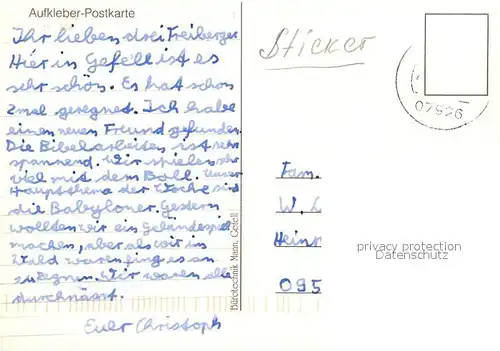 Aufkleber-Postkarte
Ihr lieben drei Freiberger
Hier in Gefell ist es
sehr schön. Es hat schon
2mal geregnet. Ich habe
einen neuen Freund gefunden.
Die Bibelarbeiten ist sehr
spannend. Wir spielen sehr
viel mit dem Boll. Unser
Hauptthema der Woche sind
die Babyloner. Gestern
wollten wir ein Geländespiel
machen, aber als wir in
Wald waren fing es an
zu regnen. Wir waren alle
durchnässt.
Euer Christoph
Bürotechnik Mann, Gefell
Sticker
07926
Fam.
W. L
Heinr
095
privacy protection
Datenschutz